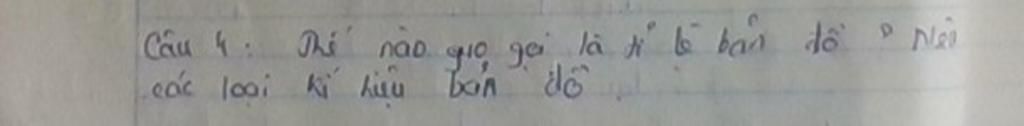 Câu 4: Thế nào gọi là tỉ lệ bản đồ? Nêu
các loại kí hiệu bản đồ.